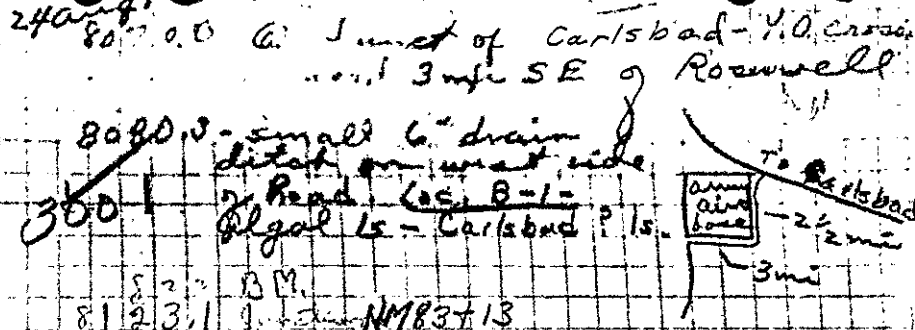 24 Aug.
Junct of Carlsbad - Y.O. cross
road 3 mi SE of Roswell
8080.3 - small 6" drain
ditch on west side
of Road. Loc. B-1-
3001
Algal ls - Carlsbad ? ls.
To Carlsbad
army
air
base
2 1/2 mi
3 mi
B.M.
8123.1 NM83+13